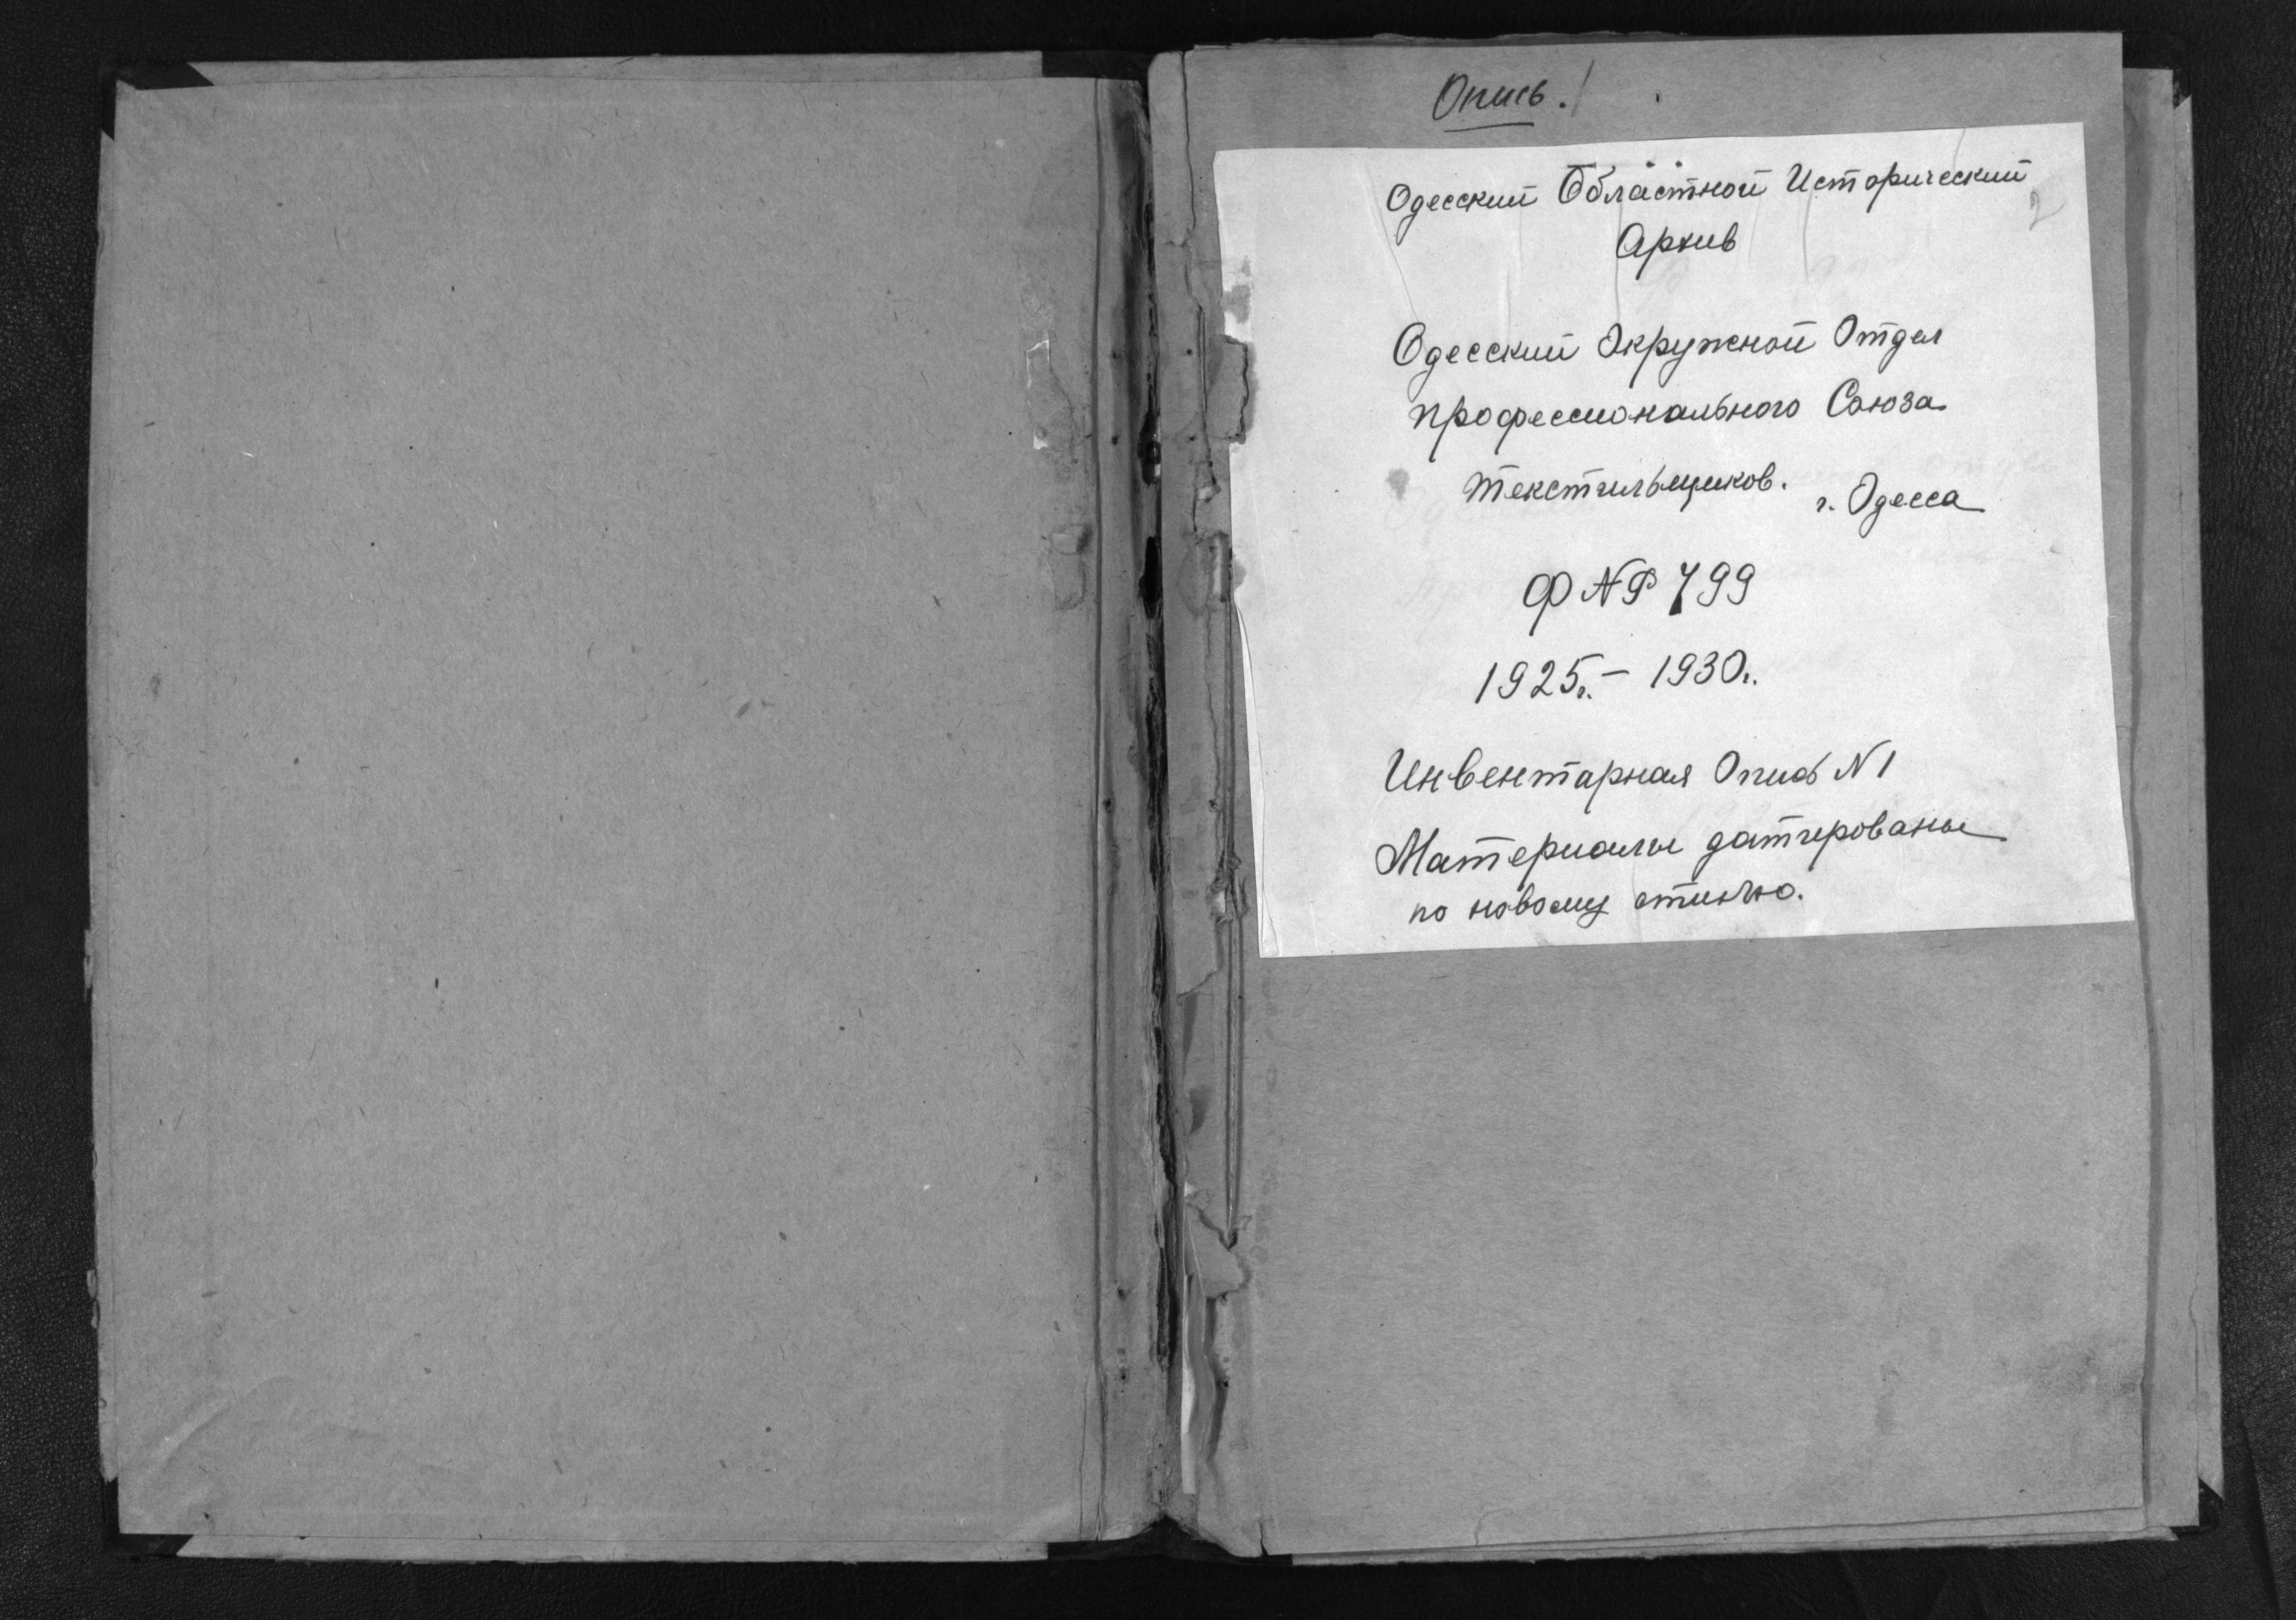 Опись. 1
Одесский Областной Исторический
2
Архив
Одесский Окружной Отдел
профессионального Союза
текстильщиков.
г. Одесса
Ф № 799
1925г. – 1930г.
Инвентарная Опись N 1
Материалы датированы
по новому стилю.